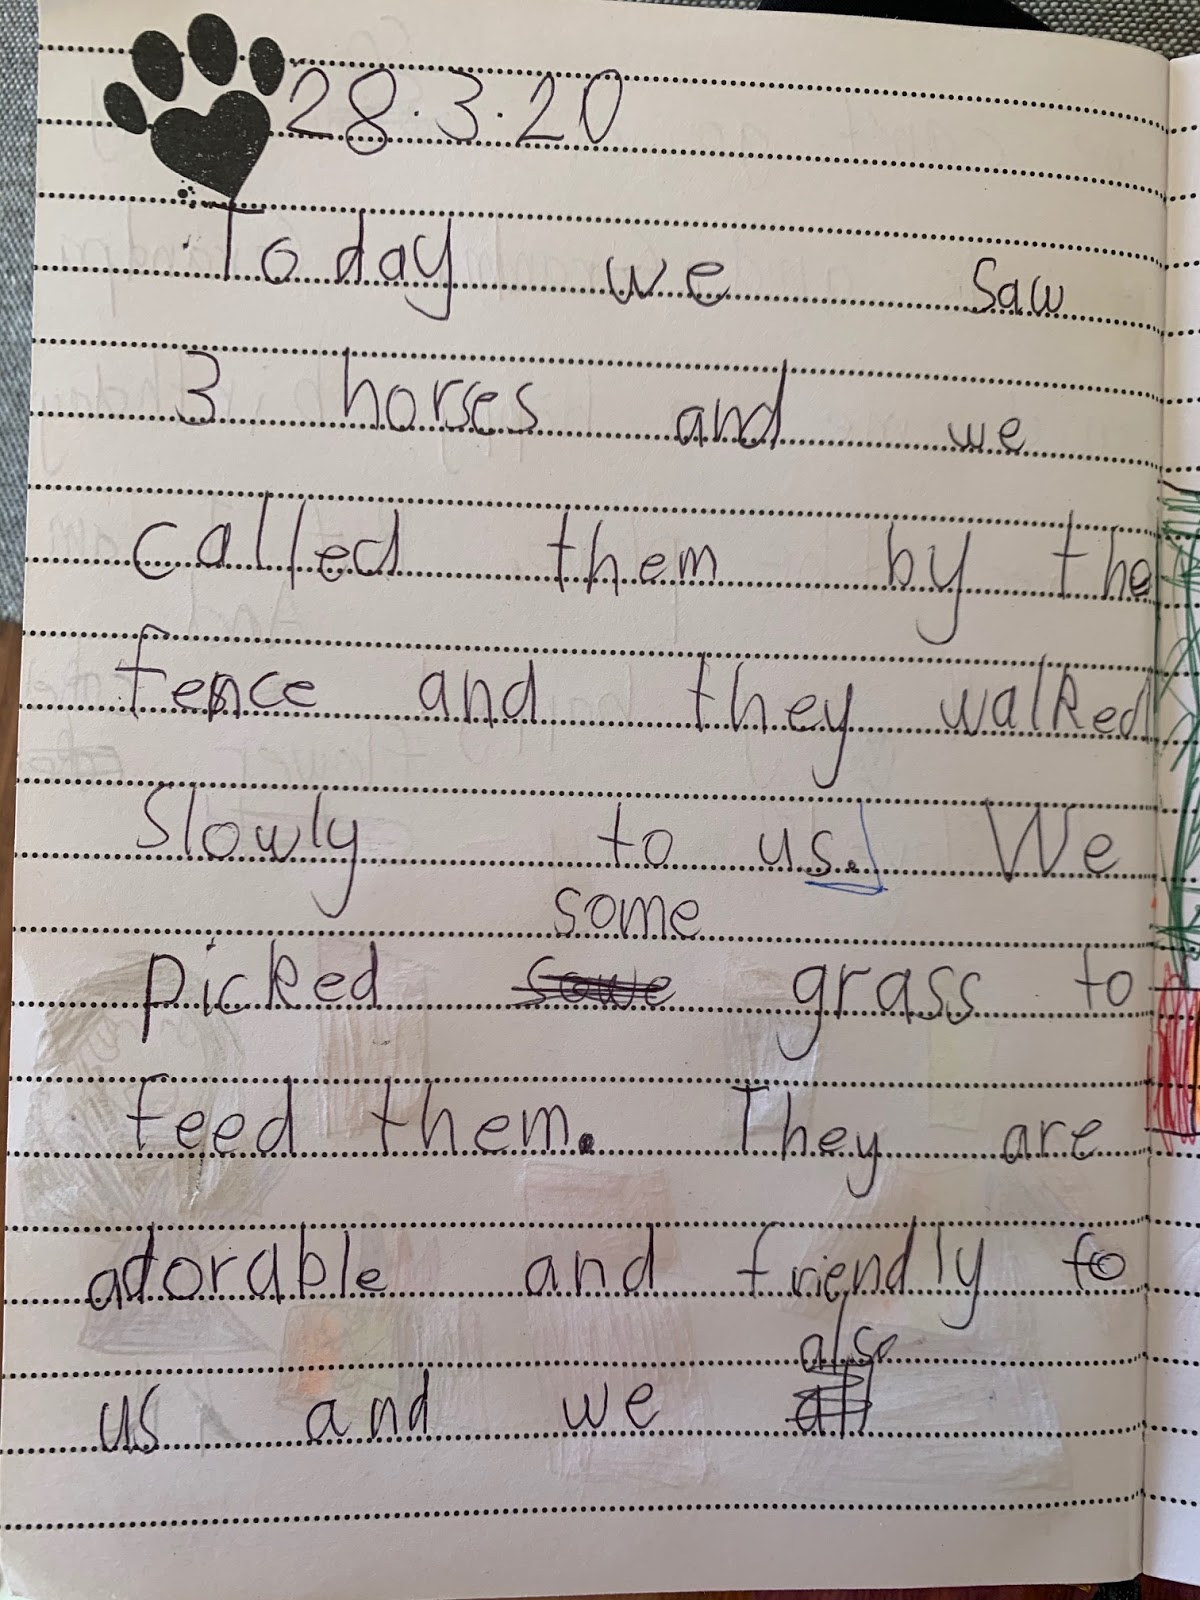 28.3.20
Today we saw
3 horses and we
called them by the
fence and they walked
Slowly to us. We
some
picked sowe grass to
feed them. They are
adorable and friendly to
also
us and we all